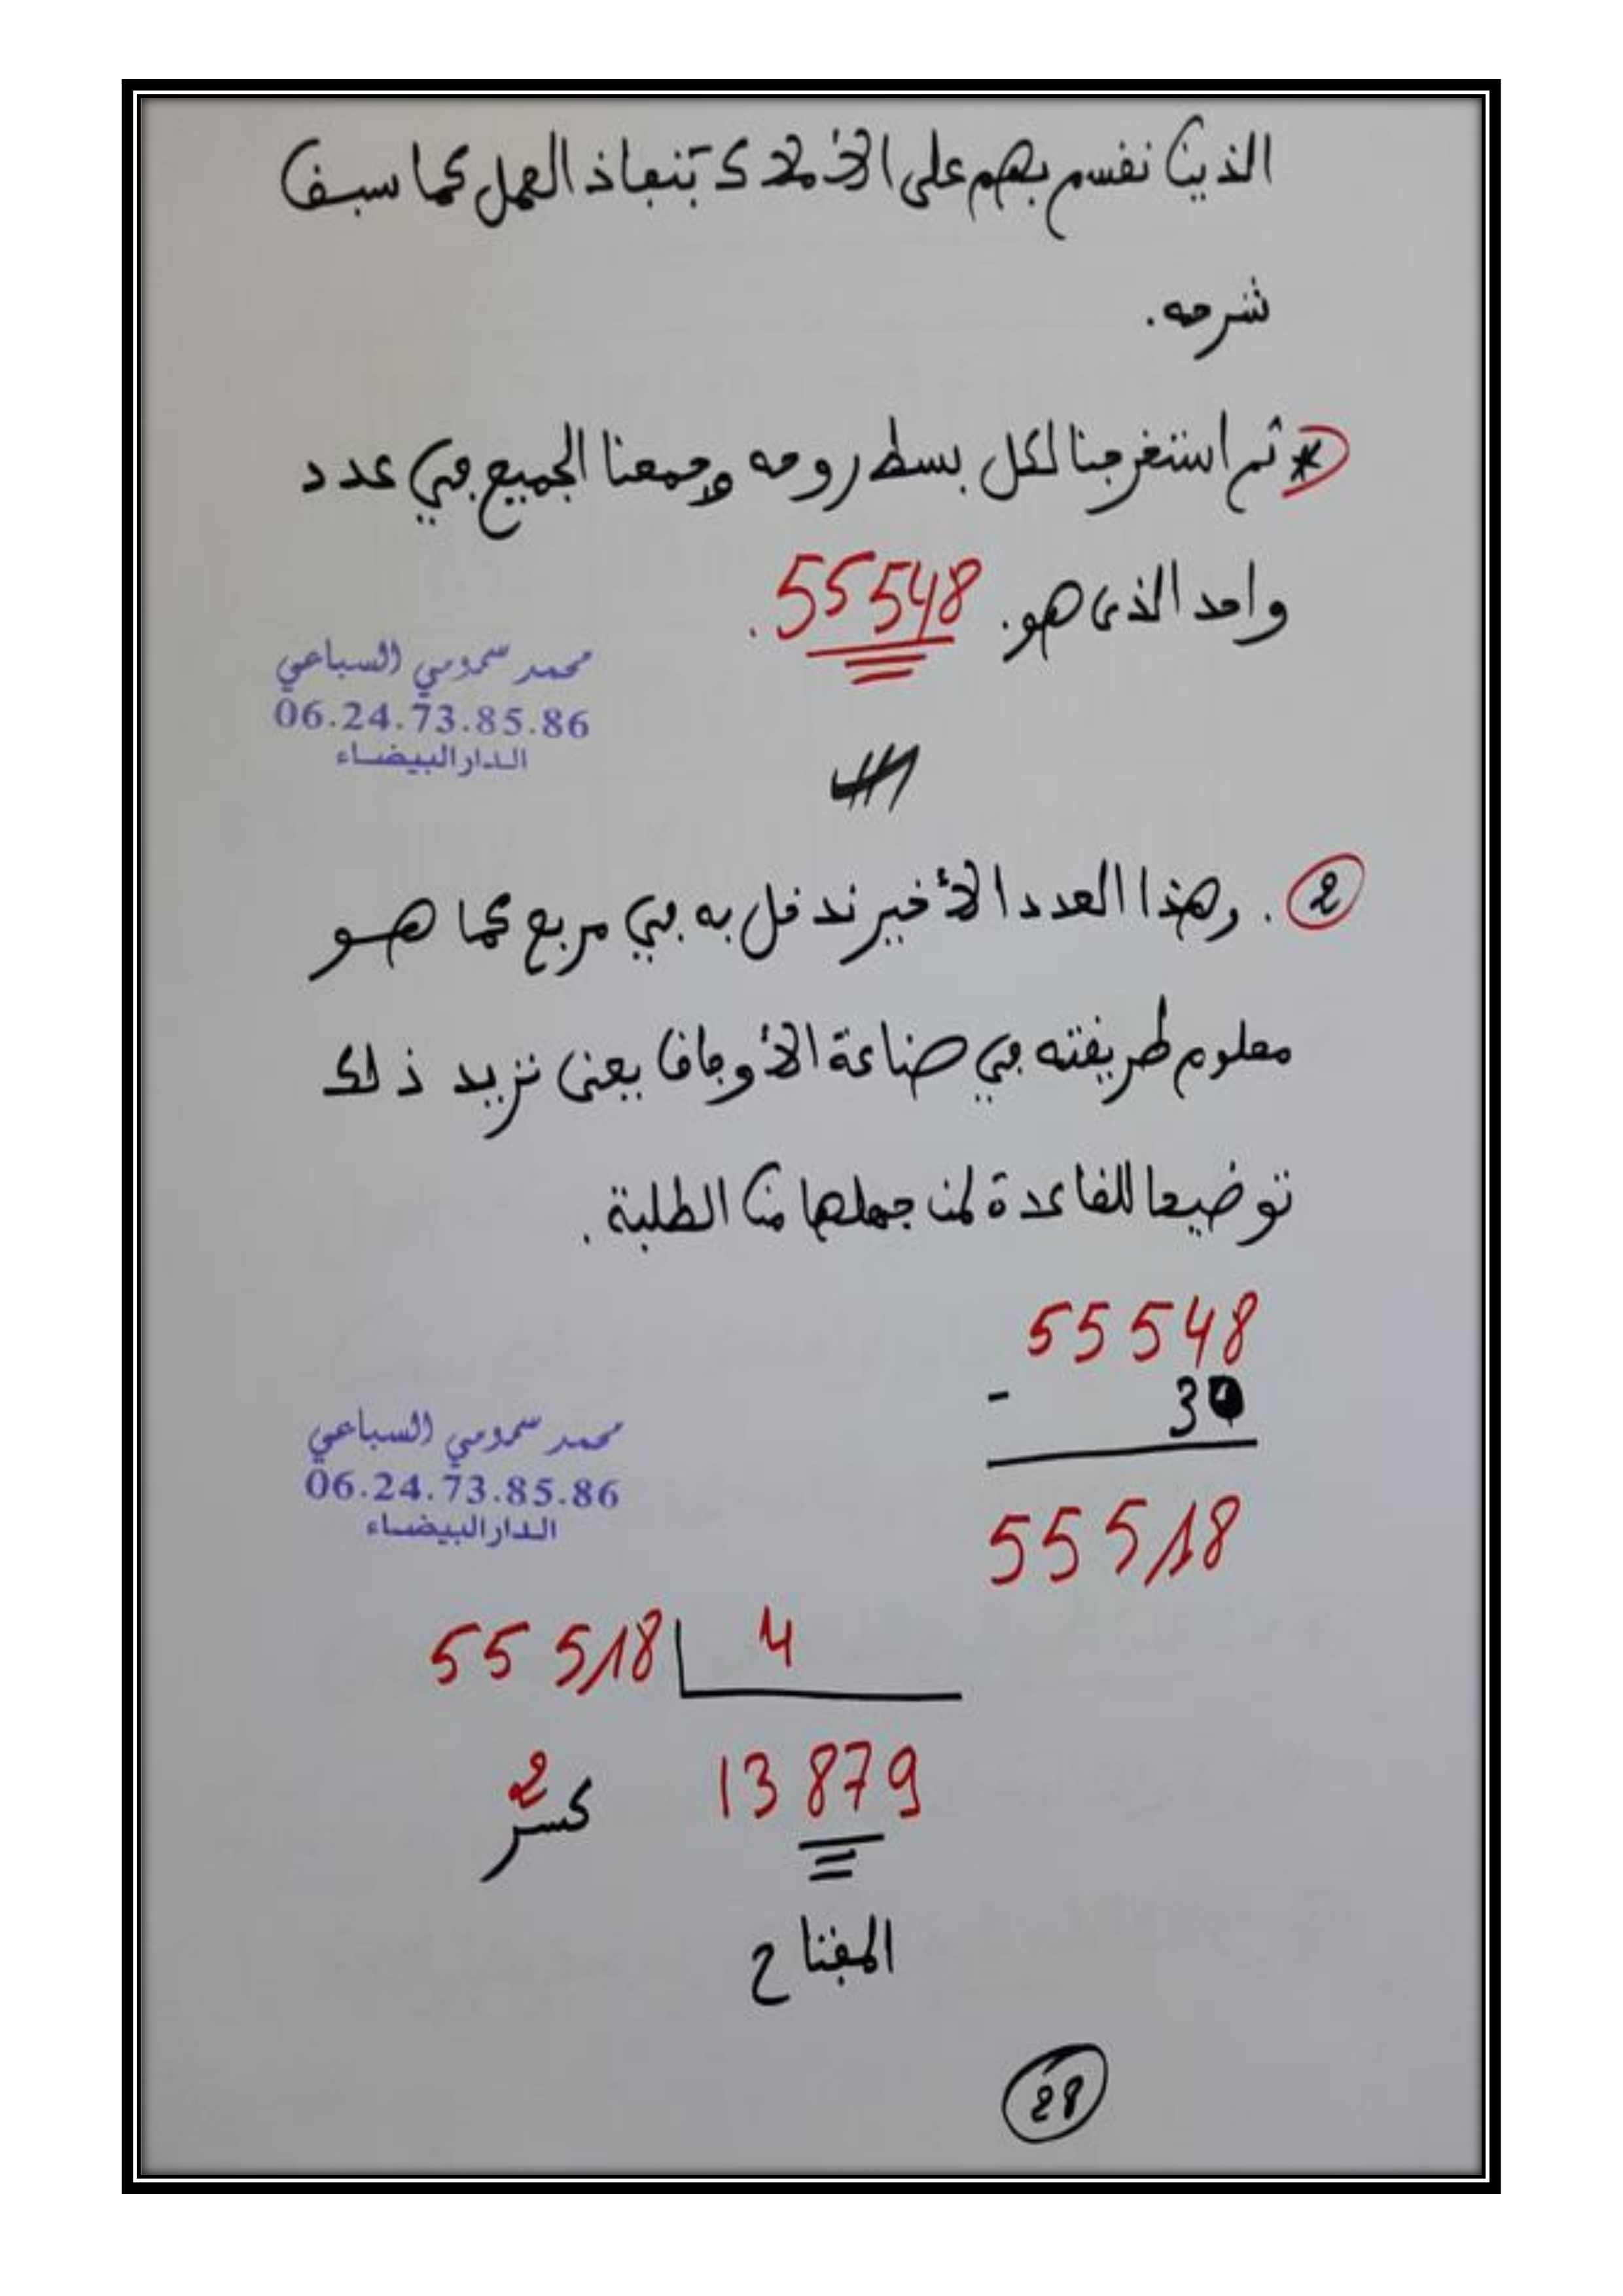 الذين نفسم بهم على الأملاك بتنفاذ العمل كما سبف
شرحه.
* ثم استخرجنا لكل بسط روحه وجمعنا الجميع في عدد
واحد الذي هو. 55548.
محمد سمومي السباعي
06.24.73.85.86
الدار البيضاء
2. وهذا العدد الأخير ندخل به في مربع كما هو
معلوم طريفته في صناعة الأوفاف يعني نزيد ذلك
توضيحا للفاعدة لمن جهلها من الطلبة.
55548
- 30
55518
محمد سمومي السباعي
06.24.73.85.86
الدار البيضاء
55518 4
13879
2 كسر
المفتاح
28